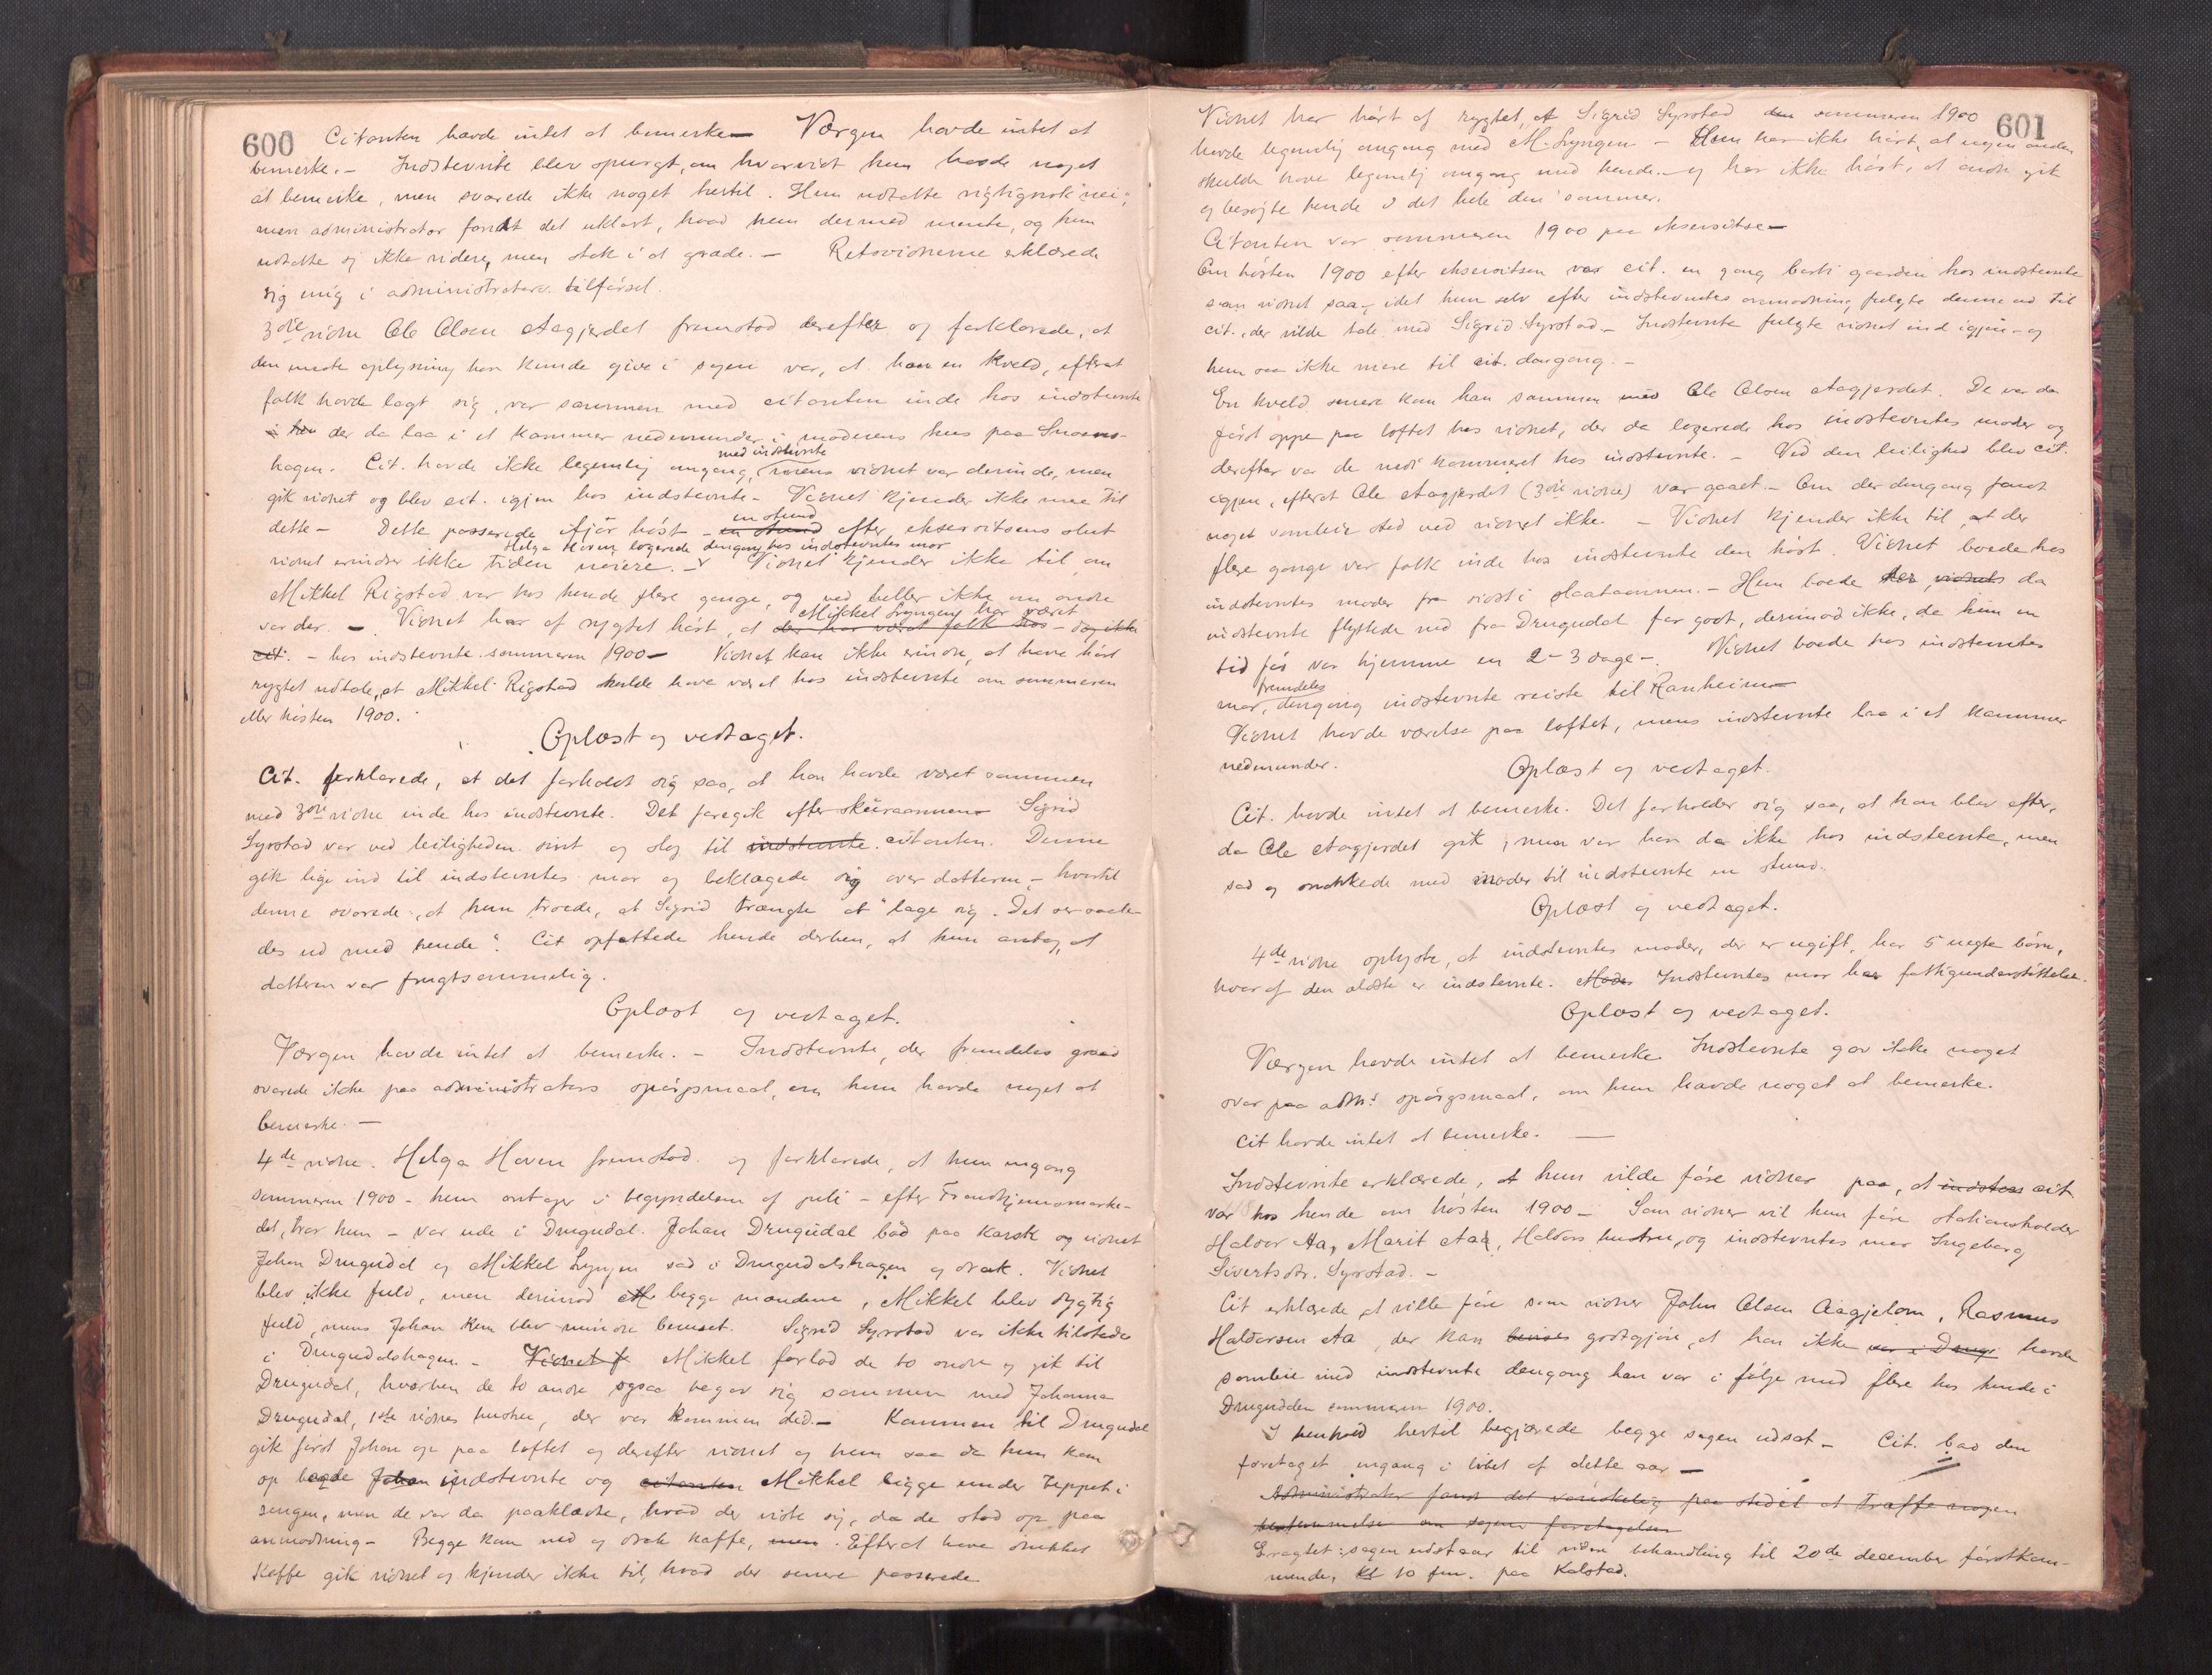 600
Citanten havde intet at bemerke —Værgen havde intet at
bemerke. – Indstevnte blev spurgt, om hvorvidt hun havde noget
at bemerke, men svarede ikke noget hertil. Hun udtalte rigtignok "nei",
men administrator fandt det uklart, hvad hun dermed mente, og hun
udtalte sig ikke videre, men stak i at græde. – Retsvidnerne erklærede
sig enig i administrators tilførsel.
3die vidne Ole Olsen Aagjerdet fremstod derefter og forklarede, at
den eneste oplysning han kunde give i sagen var, at han en kveld, efterat
folk havde lagt sig, var sammen med citanten inde hos indstevnte
der da laa i et kammer nedenunder i moderens hus paa
hagen. Cit. havde ikke legemlig omgang med indstevnte, mens vidnet var derinde, men
gik vidnet og blev cit. igjen hos indstevnte – Vidnet kjender ikke mer til
dette – Dette passerede ifjor høst – en stund efter ekserssitsens slut
vidnet erindrer ikke tiden nøiere. – Helga Hoven logerede dengang hos indstevntes mor Vidnet kjender ikke til, om
Mikkel Rigstad var hos hende flere gange, og ved heller ikke om andre
var der. – Vidnet har af rygtet hørt, at Mikkel Lyngen har været der har været folk hos – dog ikke
cit. – hos indstevnte sommeren 1900 – Vidnet kan ikke erindre, at have hørt
rygtet udtale, at Mikkel Rigstad skulde have været hos indstevnte om sommeren
eller høsten 1900.
Oplæst og vedtaget.
Cit. forklarede, at det forholdt sig saa, at han havde været sammen
med 3die vidne inde hos indstevnte. Det foregik efter skuraannen – Sigrid
Syrstad var ved leiligheden sint og slog til indstevnte citanten. Denne
gik lige ind til indstevntes mor og beklagede sig over datteren – hvortil
denne svarede, at hun troede, at Sigrid trængte at "lage sig. Det ser saale-
des ud med hende". Cit opfattede hende derhen, at hun antog, at
datteren var frugtsommelig.
Oplæst og vedtaget.
Værgen havde intet at bemerke. – Indstevnte, der fremdeles græd
svarede ikke paa administrators spørgsmaal, om hun havde noget at
bemerke. —
4de vidne. Helga Hoven fremstod og forklarede, at hun engang
sommeren 1900 – hun antager i begyndelsen af juli – efter Trondhjemsmarke-
det, tror hun – var ude i Drugudal. Johan Drugudal bød paa karsk og vidnet
Johan Drugudal og Mikkel Lyngen sad i Drugudalshagen og drak. Vidnet
blev ikke fuld, men derimod begge mændene, Mikkel blev dygtig
fuld, mens Johan kun blev mindre beruset. Sigrid Syrstad var ikke tilstede
i Drugudalshagen – Vidnet f Mikkel forlod de to andre og gik til
Drugudal, hvorhen de to andre ogsaa begav sig sammen med Johanna
Drugudal, 1ste vidnes hustru, der var kommen did. – Kommen til Drugudal
gik først Johan op paa loftet og derefter vidnet og hun saa da hun kom
op baade Johan indstevnte og citanten Mikkel ligge under teppet i
sengen, men de var da paaklædte, hvad der viste sig, da de stod op paa
anmodning – Begge kom ned og drak kaffe, men. Efter at have drukket
kaffe gik vidnet og kjender ikke til, hvad der senere passerede
601
Vidnet har hørt af rygtet, at Sigrid Syrstad den sommeren 1900
havde legemlig omgang med M. Lyngen – Hun har ikke hørt, at nogen anden
skulde have legemlig omgang med hende – og har ikke hørt, at andre gik
og besøgte hende i det hele den sommer.
Citanten var sommeren 1900 paa eksersitse –
Om høsten 1900 efter eksersitsen var cit. en gang borti gaarden hos indstevnte
som vidnet saa, idet hun selv efter indstevntes anmodning, fulgte denne ud til
cit. der vilde tale med Sigrid Syrstad – Indstevnte fulgte vidnet ind igjen – og
hun saa ikke mere til cit. dengang. –
En kveld senere kom han sammen med Ole Olsen Aagjerdet. De var da
først oppe paa loftet hos vidnet, der da logerede hos indstevntes moder og
derefter var de ned kammeret hos indstevnte. – Ved den leilighed blev cit.
igjen, efterat Ole Aagjerdet (3die vidne) var gaaet. – Om der dengang fandt
noget samleie sted ved vidnet ikke. – Vidnet kjender ikke til, at der
flere gange var folk inde hos indstevnte den høst. Vidnet boede hos
indstevntes moder fra sidst i slaataannen. – Hun boede der, vidnets da
indstevnte flyttede ned fra Drugudal for godt, derimod ikke, da hun en
tid før var hjemme en 2–3 dage –. Vidnet boede hos indstevntes
mor, fremdeles dengang indstevnte reiste til Ranheim –
Vidnet havde værelse paa loftet, mens indstevnte laa i et kammer
nedenunder.
Oplæst og vedtaget.
Cit. havde intet at bemerke. Det forholder sig saa, at han blev efter,
da Ole Aagjerdet gik, men var han da ikke hos indstevnte, men
sad og snakkede med moder til indstevnte en stund.
Oplæst og vedtaget.
4de vidne oplyste, at indstevntes moder, der er ugift, har 5 uegte børn,
hvoraf den ældste er indstevnte. Moder Indstevntes mor har fattigunderstøttelse.
Oplæst og vedtaget.
Værgen havde intet at bemerke. Indstevnte gav ikke noget
svar paa adm:s spørgsmaal, om hun havde noget at bemerke.
Cit havde intet at bemerke. —
Indstevnte erklærede, at hun vilde føre vidner paa, at indstev cit
var hos hende om høsten 1900 – Som vidner vil hun føre stationsholder
Haldor Aa, Marit Aa, Haldors hustru, og indstevntes mor Ingeborg
Sivertsdtr. Syrstad. –
Cit erklærede at ville føre som vidner John Olsen Aagjelom, Rasmus
Haldorsen Aa, der kan bevise godtgjøre, at han ikke var i Drug havde
samleie med indstevnte dengang han var i følge med flere hos hende i
Drugudalen sommeren 1900.
I henhold hertil begjærede begge sagen udsat – Cit. bad den
foretaget engang i løbet af dette aar –
Administrator fandt det vanskelig paa stedet at træffe nogen
bestemmelse om sagens foretagelse
Eragtet: sagen udstaar til videre behandling til 20de december førstkom-
mende, kl 10 fm. paa Kalstad.